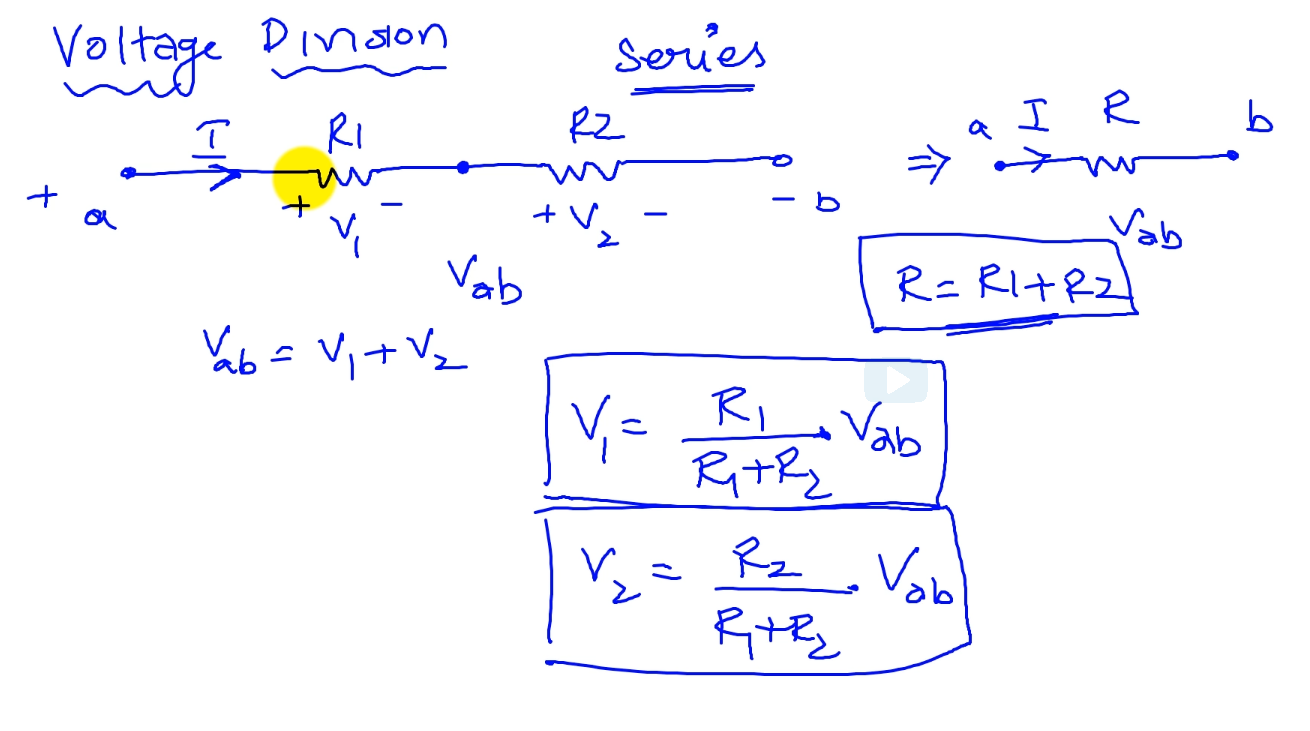 Voltage Division
Series
I R1 R2
+ a + V₁ - + V₂ - - b
Vab
⇒ a I R b
Vab
R = R1 + R2
Vab = V₁ + V₂
V₁ = R₁ / R₁+R₂ . Vab
V₂ = R₂ / R₁+R₂ . Vab